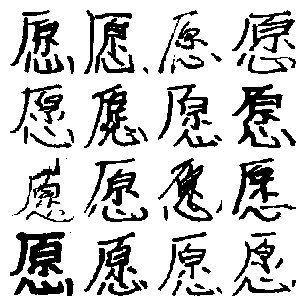 愿愿愿愿
愿愿愿愿
愿愿愿愿
愿愿愿愿